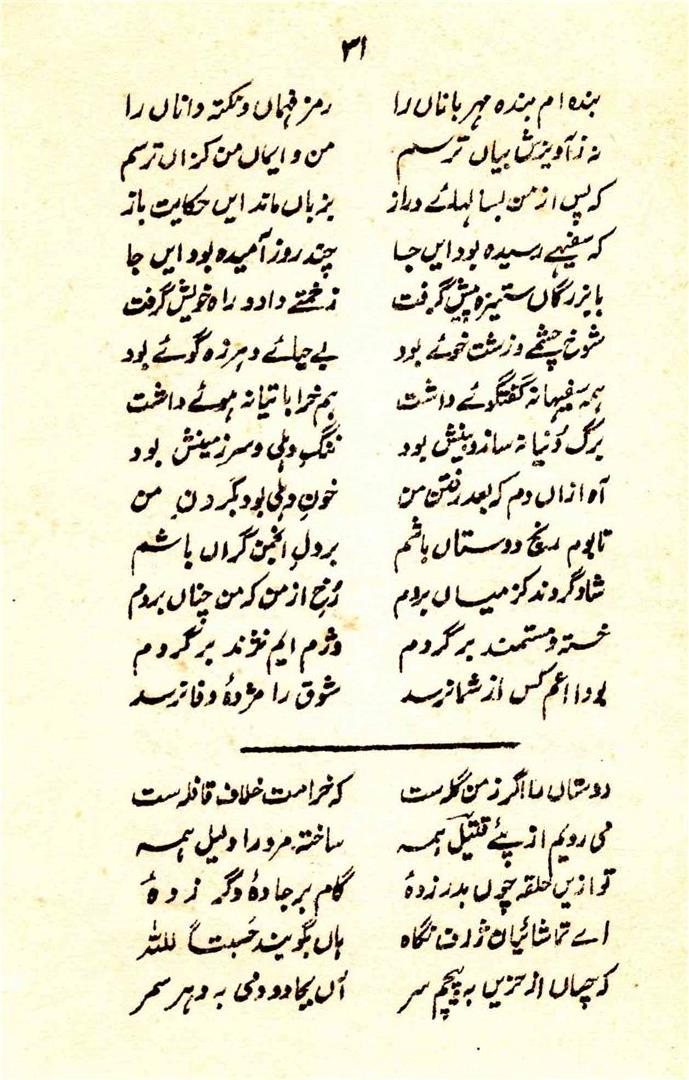 ۳۱
بندہ ام بندہ مہربانان را رمز فہماں و نکتہ داناں را
نہ ز آویزش بیاں ترسم من و ایمان من کزاں ترسم
کہ پس از من بسالہائے دراز بزباں ماند ایں حکایت باز
کہ سفیہے رسیدہ بود ایں جا چند روز آمیدہ بود ایں جا
با بزرگاں ستیزہ پیش گرفت زحمتے داد و راہ خویش گرفت
شوخ چشمے و زشت خوئے بود بے حیائے و ہرزہ گوئے بود
ہمہ سفیہانہ گفتگوئے داشت ہم خراباتیانہ ہوئے داشت
برگ دُنیا نہ ساز دینش بود ننگِ دہلی و سرزمینش بود
آہ ازاں دم کہ بعد رفتن من خونِ دہلی بود بگردن من
تا بوم رنج دوستاں باشم بر دلِ انجمن گراں باشم
شاد گردند کز میاں بروم رُخ از من کہ من چناں بروم
خستہ و مستمند برگردم دژم ایم نژند برگردم
بوداعم کس از شما نرسد شوق را مژدۂ وفا نرسد
دوستاں را اگر ز من گلہ ست کہ خرامت خلاف قافلہ ست
می رویم از پئے قتیل ہمہ ساختہ مرورا دلیل ہمہ
تو ازیں حلقہ چوں بدر زدۂ گام بر جادۂ دگر زدۂ
اے تماشائیان ژرف نگاہ ہاں بگویند حسبتاً للہ
کہ چساں از حزیں بہ پیچم سر آں بجادو دمی بہ دہر سمر